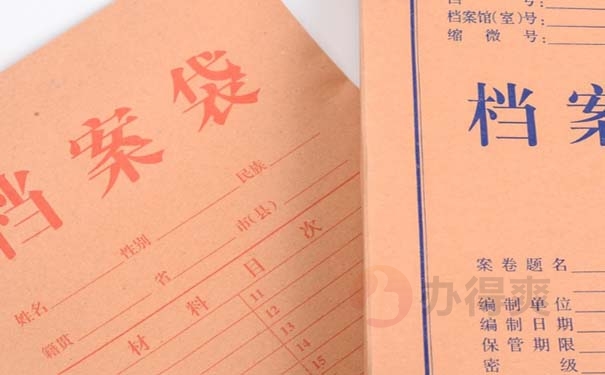 档案袋
姓名 性别 民族
籍贯 省 市(县)
材料目次
11
12
13
14
15
号:
档案馆(室)号:
缩微号:
档案
案卷题名
编制单位
编制日期
保管期限
密级
办得爽